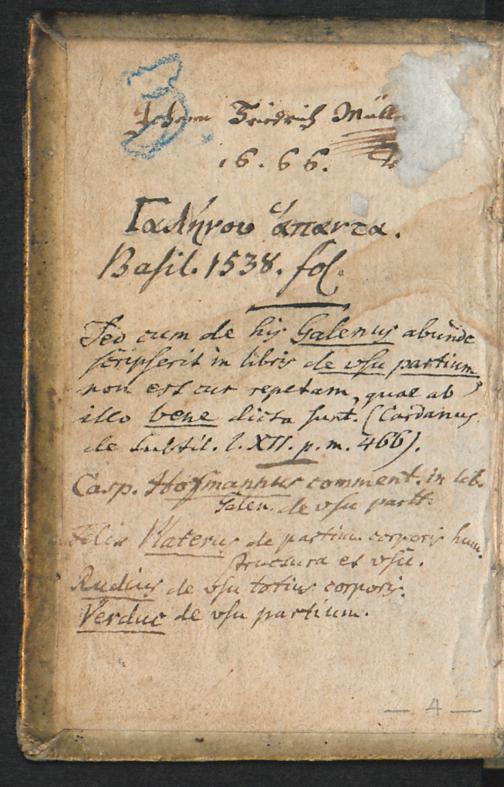 3
Johann Friedrich Müll
16.66.
Γαλήνου ἅπαντα.
Basil. 1538. fol.
Sed cum de his Galenus abunde
scripserit in libris de usu partium,
non est cur repetam, quae ab
illo bene dicta sunt. (Cardanus
de Subtil. l. XII. p. m. 466).
Casp. Hofmannus comment. in lib.
Galen. de usu partt.
Felix Platerus de partium corporis hum.
structura et usu.
Rudius de usu totius corporis.
Verduc de usu partium.
— 4 —